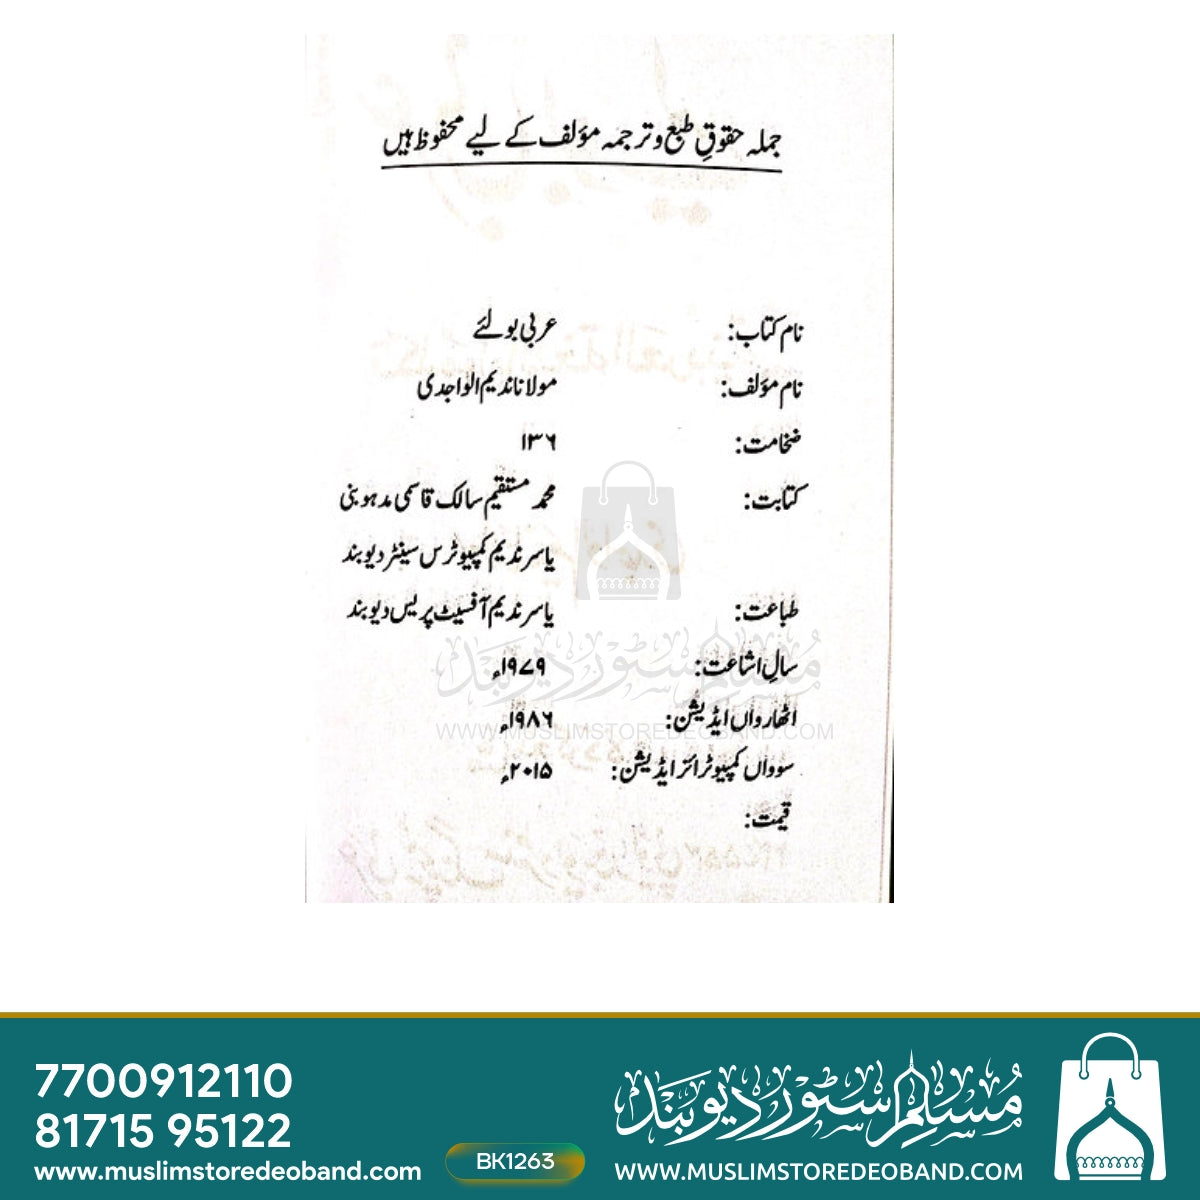 جملہ حقوقِ طبع و ترجمہ مؤلف کے لیے محفوظ ہیں
نام کتاب: عربی بولئے
نام مؤلف: مولانا ندیم الواجدی
ضخامت: ۱۳۶
کتابت: محمد مستقیم سالک قاسمی مدہوبنی
یاسر ندیم کمپیوٹرس سینٹر دیوبند
طباعت: یاسر ندیم آفسیٹ پریس دیوبند
سالِ اشاعت: ۱۹۷۹ء
اٹھارواں ایڈیشن: ۱۹۸۶ء
سوواں کمپیوٹرائز ایڈیشن: ۲۰۱۵ء
قیمت:
مسلم سٹور دیوبند
WWW.MUSLIMSTOREDEOBAND.COM
7700912110
81715 95122
www.muslimstoredeoband.com
BK1263
مسلم سٹور دیوبند
WWW.MUSLIMSTOREDEOBAND.COM